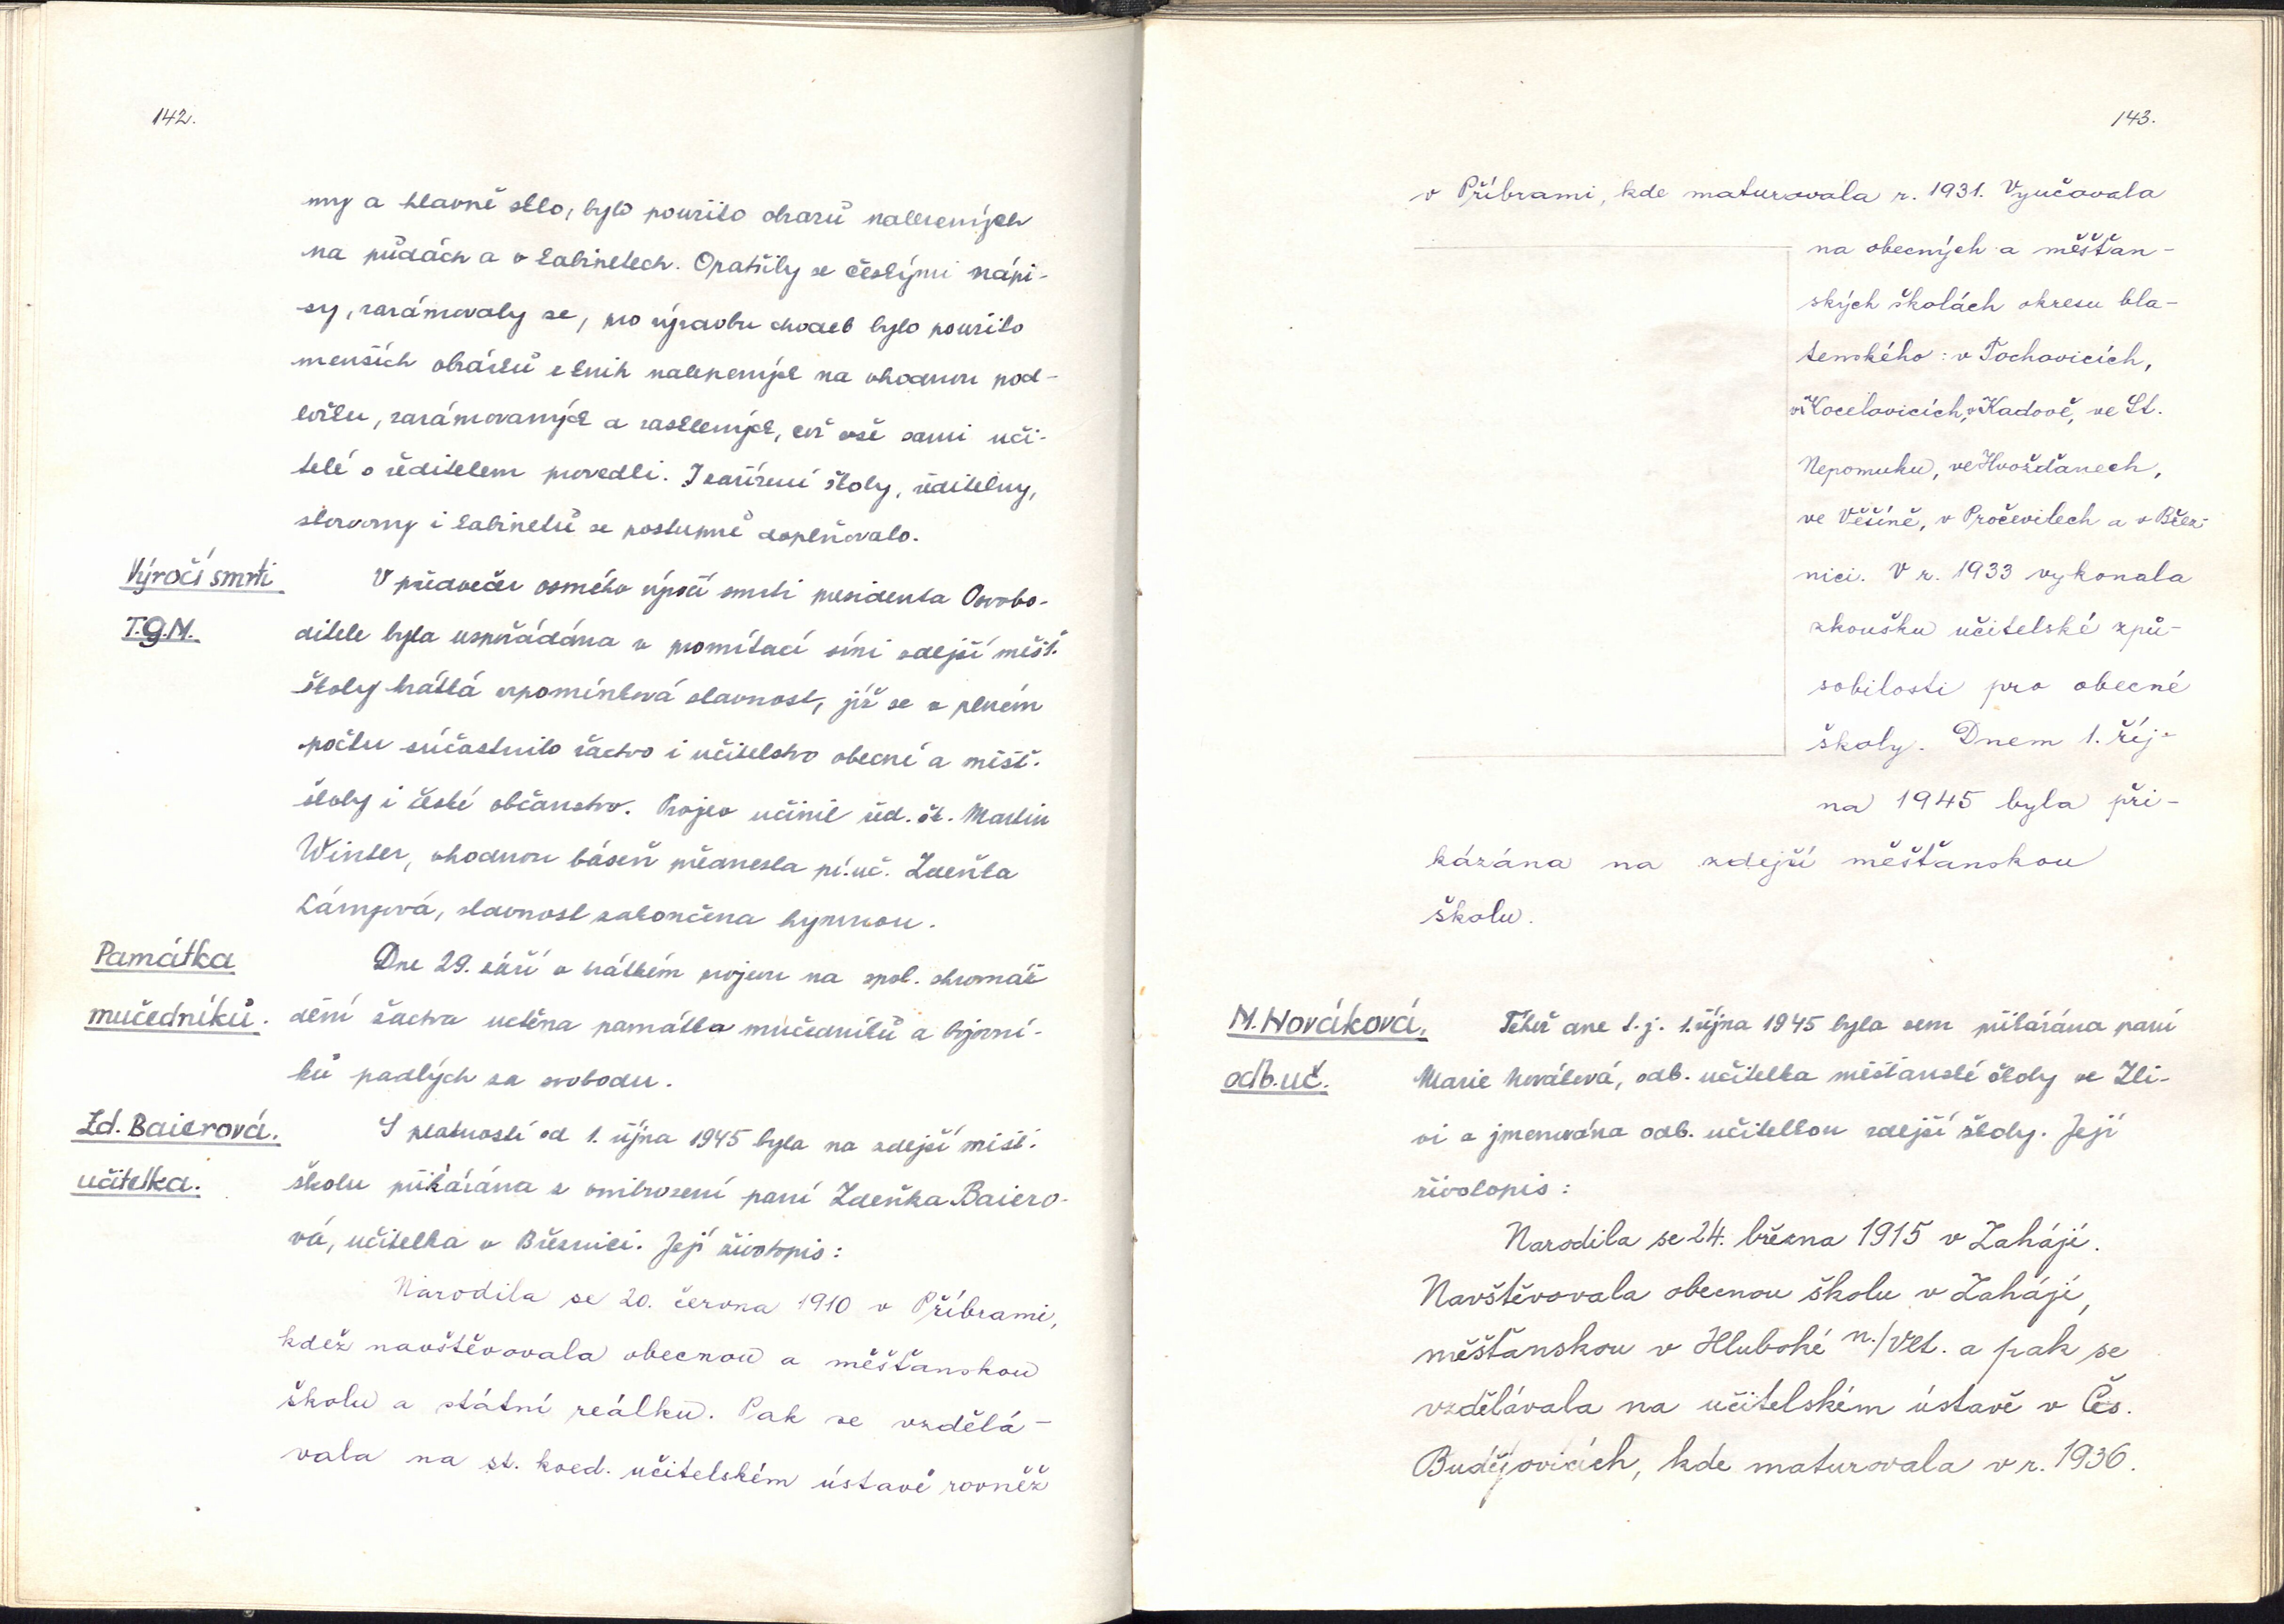 142.
my a hlavně sklo, bylo použito obrazů nalezených
na půdách a v kabinetech. Opatřily se českými nápi-
sy, zarámovaly se, pro výzdobu chodeb bylo použito
menších obrázků z knih nalepených na vhodnou pod-
ložku, zarámovaných a zasklených, což vše sami uči-
telé s ředitelem provedli. I zařízení školy, ředitelny,
sborovny i kabinetů se postupně doplňovalo.
Výročí smrti
T.G.M.
V předvečer osmého výročí smrti presidenta Osvobo-
ditele byla uspořádána v promítací síni zdejší měšť.
školy krátká vzpomínková slavnost, jíž se v plném
počtu súčastnilo žactvo i učitelstvo obecné a měšť.
školy i české občanstvo. Projev učinil řed. šk. Martin
Winter, vhodnou báseň přednesla pí. uč. Zdeňka
Lámrová, slavnost zakončena hymnou.
Památka
mučedníků.
Dne 29. září v krátkém projevu na spol. shromáž
dění žactva uctěna památka mučedníků a bojovní-
ků padlých za svobodu.
Zd. Baierová.
učitelka.
S platností od 1. října 1945 byla na zdejší měšť.
školu přikázána z paní Zdeňka Baiero-
vá, učitelka v Březnici. Její životopis:
Narodila se 20. června 1910 v Příbrami,
kdež navštěvovala obecnou a měšťanskou
školu a státní reálku. Pak se vzdělá-
vala na st. koed. učitelském ústavě rovněž
143.
v Příbrami, kde maturovala r. 1931. Vyučovala
na obecných a měšťan-
ských školách okresu bla-
tenského: v Tochovicích,
v Kocelovicích, v Kadově, ve St.
Nepomuku, ve Hvožďanech,
ve Věšíně, v Pročevilech a v Břez-
nici. V r. 1933 vykonala
zkoušku učitelské způ-
sobilosti pro obecné
školy. Dnem 1. říj-
na 1945 byla při-
kázána na zdejší měšťanskou
školu.
M. Nováková,
odb. uč.
Téhož dne t.j. 1. října 1945 byla sem přikázána paní
Marie Nováková, odb. učitelka měšťanské školy ve Zli-
vi a jmenována odb. učitelkou zdejší školy. Její
životopis:
Narodila se 24. března 1915 v Zahájí.
Navštěvovala obecnou školu v Zahájí,
měšťanskou v Hluboké n./Vlt. a pak se
vzdělávala na učitelském ústavě v Čes.
Budějovicích, kde maturovala v r. 1936.